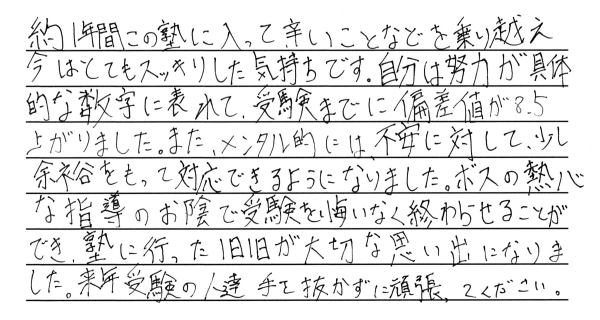 約1年間この塾に入って、辛いことなどを乗り越え
今はとてもスッキリした気持ちです。自分は努力が具体
的な数字に表れて、受験までに偏差値が8.5
上がりました。また、メンタル的には、不安に対して、少し
余裕をもって対応できるようになりました。ボスの熱心
な指導のお陰で受験を悔いなく終わらせることが
でき、塾に行った1日1日が大切な思い出になりま
した。来年受験の人達 手を抜かずに頑張ってください。